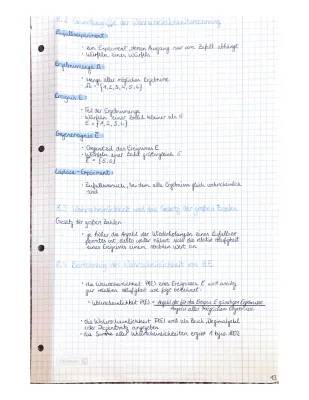 8.2 Grundbegriffe der Wahrscheinlichkeitsrechnung
Zufallsexperiment
• ein Experiment, dessen Ausgang nur vom Zufall abhängt
• Würfeln eines Würfels
Ergebnismenge Ω
• Menge aller möglichen Ergebnisse
Ω = {1, 2, 3, 4, 5, 6}
Ereignis E
• Teil der Ergebnismenge
• Würfeln einer Zahl kleiner als 5
E = {1, 2, 3, 4}
Gegenereignis E̅
• Gegenteil des Ereignisses E
• Würfeln einer Zahl
E̅ = {5, 6}
Laplace-Experiment
• Zufallsversuch, bei dem alle Ergebnisse gleich wahrscheinlich sind
8.3 Wahrscheinlichkeit und das Gesetz der großen Zahlen
Gesetz der großen Zahlen
• je höher die Anzahl der Wiederholungen eines
desto näher die relative Häufigkeit
eines Ereignisses einem
Berechnung der Wahrscheinlichkeit von
• die Wahrscheinlichkeit P(E) eines Ereignisses E wird
zur relativen Häufigkeit wie folgt
• Wahrscheinlichkeit P(E) = Anzahl der für das Ereignis E günstigen Ergebnisse
Anzahl aller möglichen Ergebnisse
• die Wahrscheinlichkeit P(E) wird als Bruch, Dezimalzahl
oder Prozentsatz angegeben
• die Summe aller Wahrscheinlichkeiten ergibt 1 bzw. 100%
13